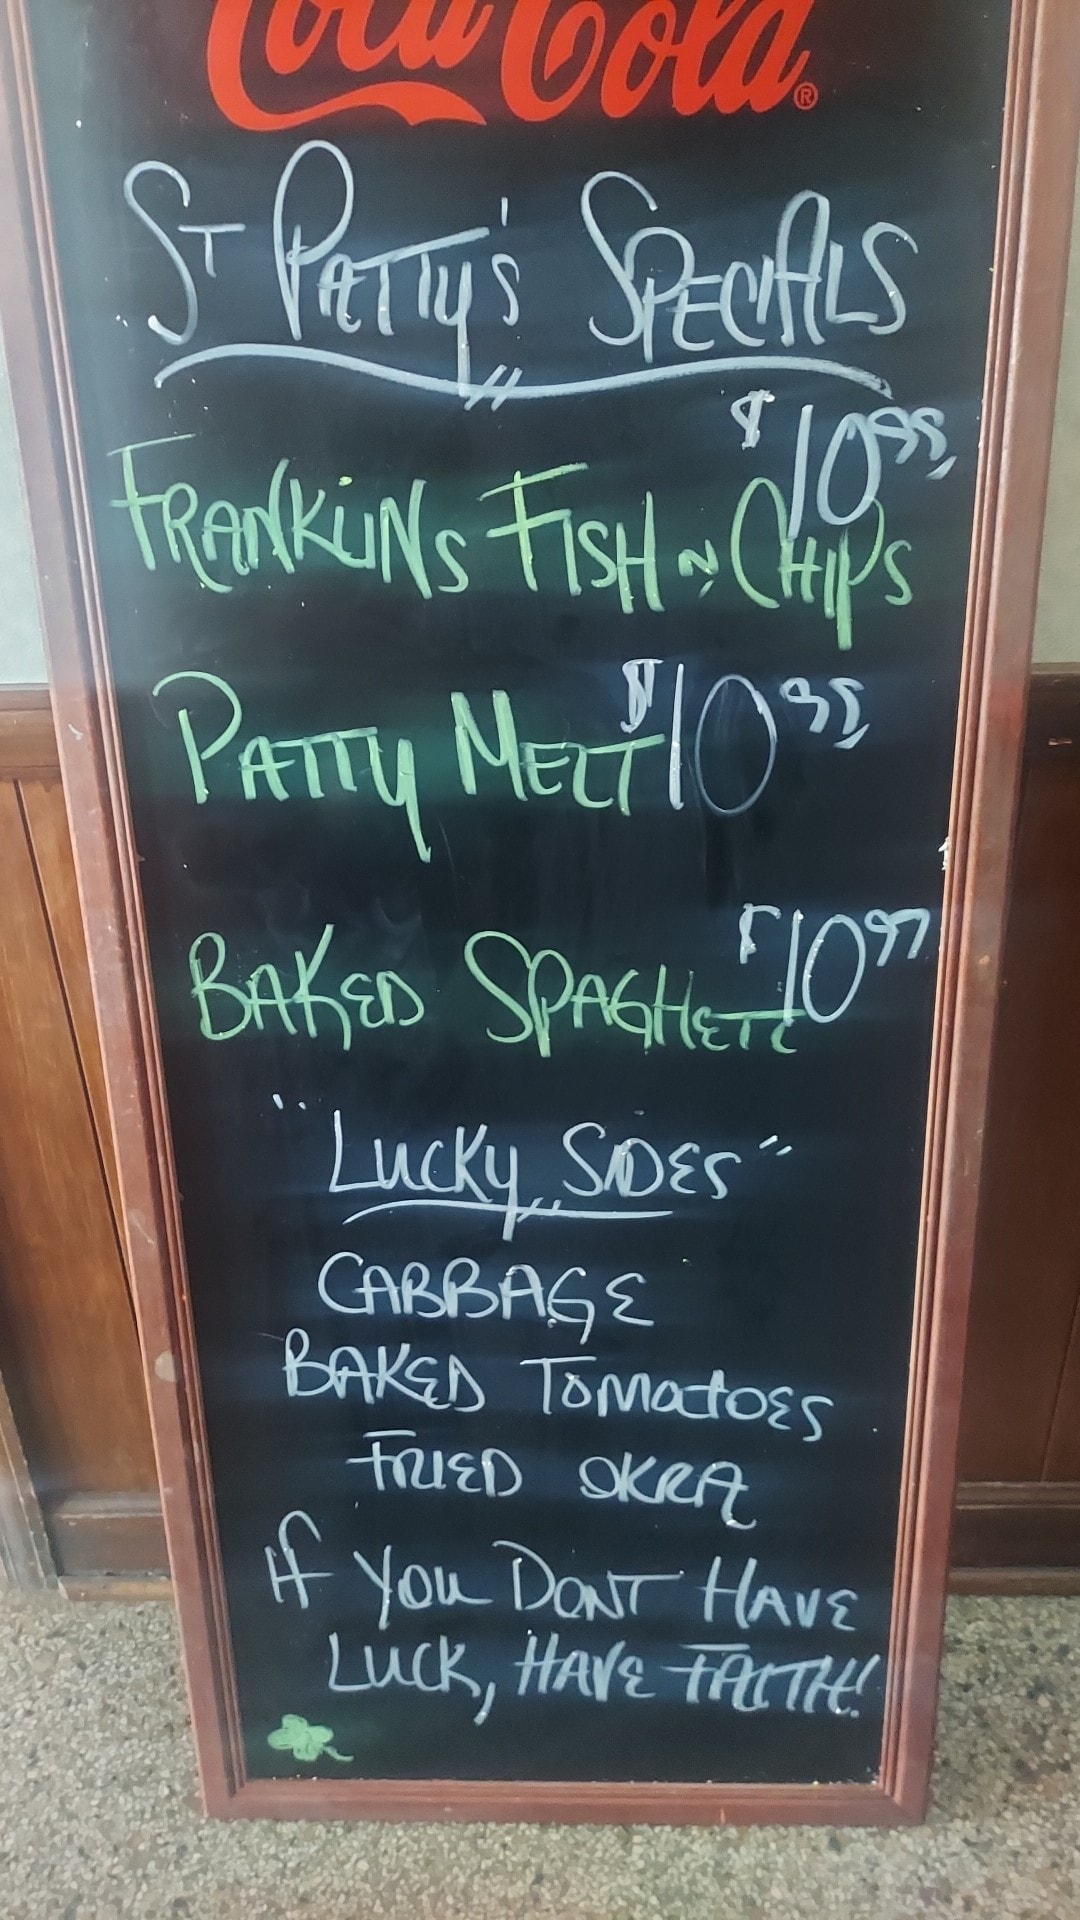 Coca-Cola®
ST PATTY'S SPECIALS
$10.99
FRANKLINS FISH N CHIPS
PATTY MELT $10.99
BAKED SPAGHETTI $10.99
"LUCKY SIDES"
CABBAGE
BAKED TOMATOES
FRIED OKRA
IF YOU DONT HAVE
LUCK, HAVE FAITH!